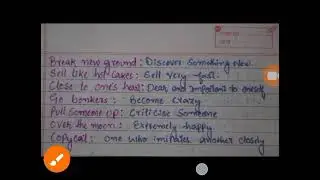 Break new ground : Discover something new.
Sell like hot cakes : Sell very fast.
Close to one's heart : Dear and important to oneself
Go bonkers : become crazy
Pull someone up : Criticise someone
Over the moon : Extremely happy
Copycat : one who imitates another closely